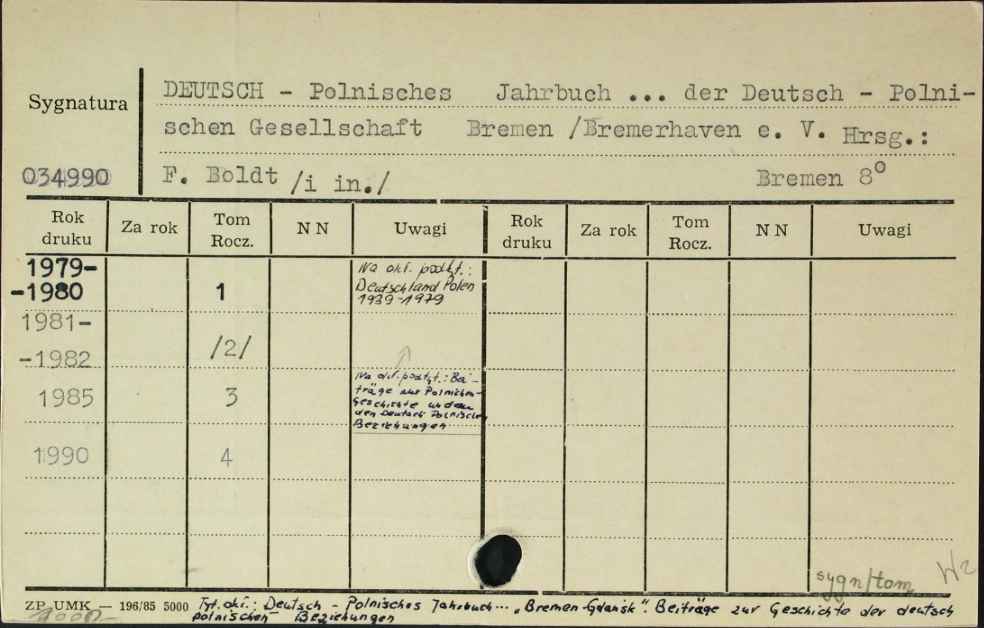 Sygnatura
DEUTSCH - Polnisches Jahrbuch ... der Deutsch - Polni-
schen Gesellschaft Bremen /Bremerhaven e. V. Hrsg.:
034990
F. Boldt /i in./ Bremen 8°
Rok druku Za rok Tom Rocz. N N Uwagi Rok druku Za rok Tom Rocz. N N Uwagi
1979-
-1980 1
Na okł. podtyt.:
Deutschland Polen
1939-1979
1981-
-1982 /2/
1985 3
Na okł. podtyt.: Bei-
träge zur Polnischen
Geschichte und zu
den Deutsch Polnischen
Beziehungen
1990 4
sygn/tom W2
ZP UMK — 196/85 5000 Tyt. okł.: Deutsch - Polnisches Jahrbuch... „Bremen-Gdańsk". Beiträge zur Geschichte der deutsch
polnischen Beziehungen